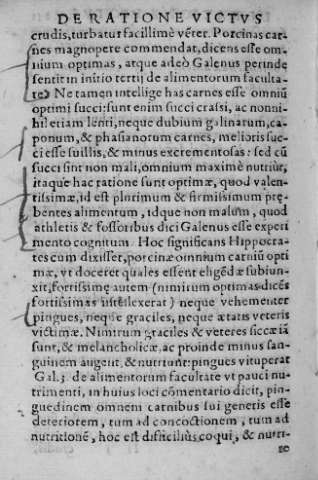 DE RATIONE VICTVS
crudis, turbatur facillimè vẽter. Porcinas car-
nes magnopere commendat, dicens esse om-
nium optimas, atque adeò Galenus perinde
sentit in initio tertij de alimentorum faculta-
te. Ne tamen intellige has carnes esse omniũ
optimi succi: sunt enim succi crassi, ac nonni-
hil etiam lenti, neque dubium galinarum, ca-
ponum, & phasianorum carnes, melioris suc-
ci esse suillis, & minus excrementosas: sed cũ
succi sint non mali, omnium maximè nutriũt,
itaque hac ratione sunt optimæ, quod valen-
tissimæ, id est plurimum & firmissimum præ-
bentes alimentum, idque non malum, quod
athletis & fossoribus dici Galenus esse experi
mento cognitum. Hoc significans Hippocra-
tes cum dixisset, porcinæ omnium carniũ opti
mæ, vt doceret quales essent eligẽdæ subiun-
xit, fortissimę autem (nimirum optimas dicẽs
fortissimas intellexerat) neque vehementer
pingues, neque graciles, neque ætatis veteris
victimæ. Nimirum graciles & veteres siccæ iã
sunt, & melancholicæ, ac proinde minus san-
guinem augent, & nutriunt: pingues vituperat
Gal. 3. de alimentorum facultate vt pauci nu-
trimenti, in huius loci cõmentario dicit, pin-
guedinem omnem carnibus sui generis esse
deteriorem, tum ad concoctionem, tum ad
nutritionẽ, hoc est difficilius coqui, & nutri-
re